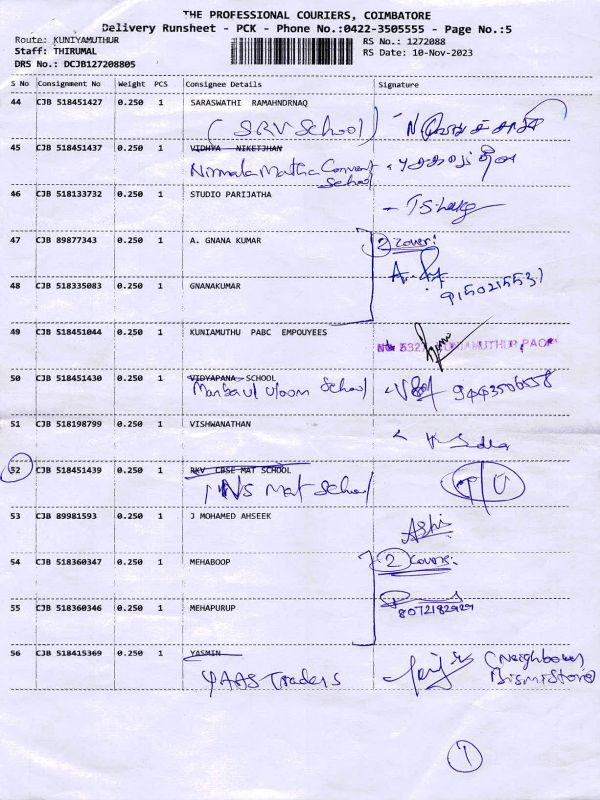 THE PROFESSIONAL COURIERS, COIMBATORE
Delivery Runsheet - PCK - Phone No.:0422-3505555 - Page No.:5
Route: KUNIYAMUTHUR
RS No.: 1272088
Staff: THIRUMAL
RS Date: 10-Nov-2023
DRS No.: DCJB127208805
S No Consignment No Weight PCS Consignee Details Signature
44 CJB 518451427 0.250 1 SARASWATHI RAMAHNDRNAQ
(SRV School)
45 CJB 518451437 0.250 1 VIDHYA NIKETJHAN
Nirmala Matha Convent
School
46 CJB 518133732 0.250 1 STUDIO PARIJATHA
47 CJB 89877343 0.250 1 A. GNANA KUMAR
2 Cover:
48 CJB 518335083 0.250 1 GNANAKUMAR
9150215531
49 CJB 518451044 0.250 1 KUNIAMUTHU PABC EMPOUYEES
50 CJB 518451430 0.250 1 VIDYAPANA SCHOOL
School 9443506558
51 CJB 518198799 0.250 1 VISHWANATHAN
52 CJB 518451439 0.250 1 RKV CBSE MAT SCHOOL
MNS Mat School
53 CJB 89981593 0.250 1 J MOHAMED AHSEEK
54 CJB 518360347 0.250 1 MEHABOOP
2
55 CJB 518360346 0.250 1 MEHAPURUP
8072182929
56 CJB 518415369 0.250 1 YASMIN
YAAS Traders
(Neighbour
Bismi Store)